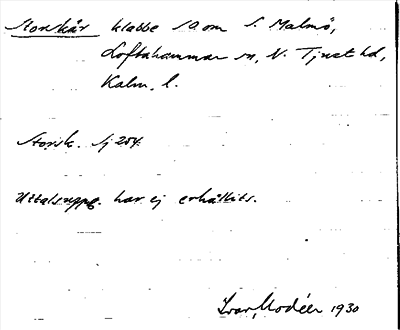 Storskär klabbe SO om S. Malmö,
Loftahammar sn, N. Tjust hd,
Kalm. l.
Storsk. Sj 204.
Uttalsuppg. har ej erhållits.
Ivar Modéer 1930